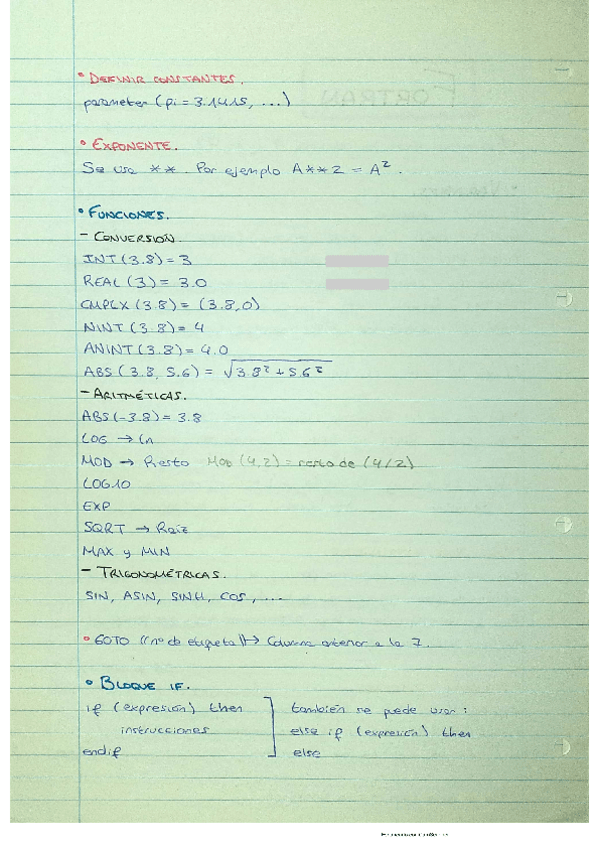 • DEFINIR CONSTANTES.
parameter (pi = 3.1415, ...)
• EXPONENTE.
Se usa **. Por ejemplo A**2 = A².
• FUNCIONES.
- CONVERSIÓN
INT (3.8) = 3
REAL (3) = 3.0
CMPLX (3.8) = (3.8,0)
NINT (3.8) = 4
ANINT (3.8) = 4.0
ABS (3.8, 5.6) = √3.8² + 5.6²
- ARITMÉTICAS.
ABS (-3.8) = 3.8
LOG → Ln
MOD → Resto MOD (4,2) = resto de (4/2)
LOG10
EXP
SQRT → Raíz
MAX y MIN
- TRIGONOMÉTRICAS.
SIN, ASIN, SINH, COS, ...
• GOTO ((nº de etiqueta)) → Columna anterior a la 7.
• BLOQUE IF.
if (expresión) then
instrucciones
endif
también se puede usar:
else if (expresión) then
else
FORTRAN